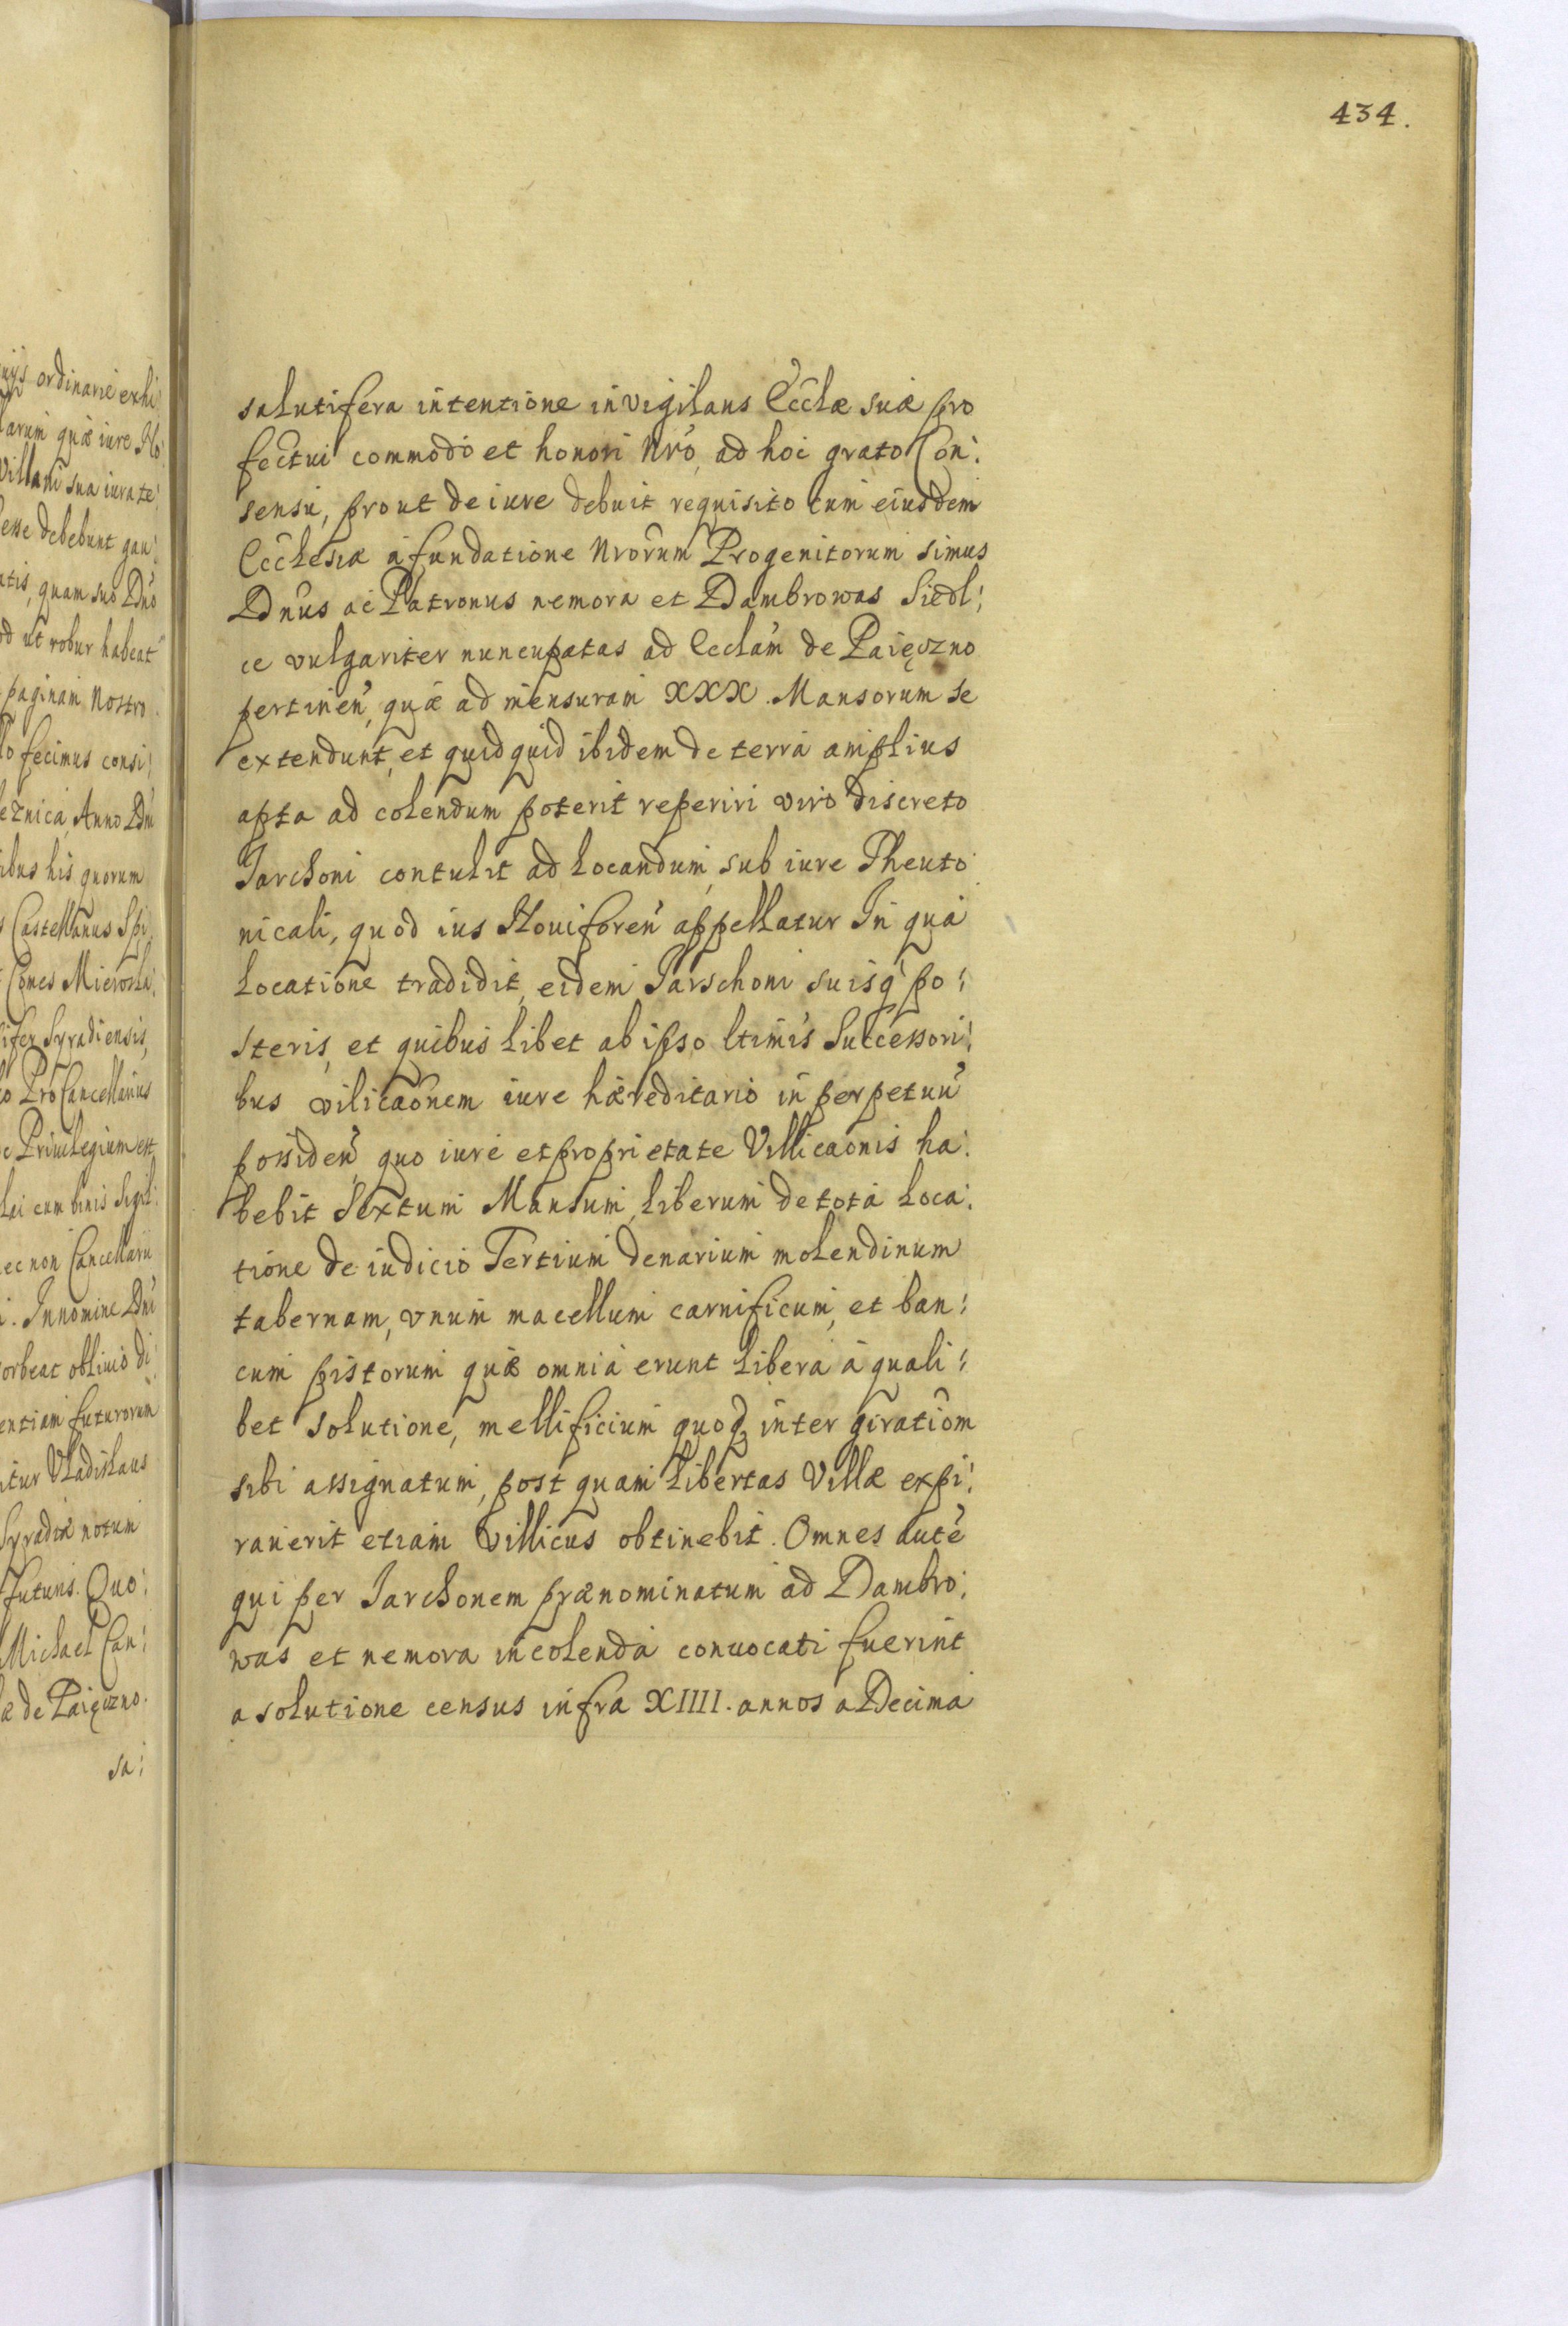 434.
uijs ordinarie exhi
larum quæ iure No
Villam sua iurate
esse debebunt gau
atis, quam suo Dnō
od ut robur habeat
paginam Nostro
lo fecimus consi
eznica, Anno Dni
ibus his quorum
s Castellanus Spi
Comes Mierosla
ifer Syradiensis,
o ProCancellarius
c Priuilegium est
lai cum binis Sigil
ec non Cancellarii
i. Innomine Dni
orbeat obliuio di
entiam futurorum
itur Vladislaus
Syradiæ notum
futuris. Quo:
Michael Can:
æ de Paięczno.
sa:
salutifera intentione invigilans Ecclæ suæ pro
fectui commodo et honori Nrō, ad hoc grato Con:
sensu, prout de iure debuit requisito cum eiusdem
Ecclesiæ a fundatione Nrorum Progenitorum simus
Dnus ac Patronus nemora et Dambrowas Siedl:
ce vulgariter nuncupatas ad Ecclam de Paięczno
pertinen, quæ ad mensuram XXX. Mansorum se
extendunt, et quidquid ibidem de terra amplius
apta ad colendum poterit reperiri viro discreto
Jarchoni contulit ad locandum, sub iure Theuto
nicali, quod ius Nouiforen appellatur In qua
locatione tradidit, eidem Jarschoni suisq po:
steris, et quibus libet ab ipso ltimis Successori:
bus vilicaonem iure hæreditario in perpetuu
possiden, quo iure et proprietate Villicaonis ha:
bebit Sextum Mansum, liberum de tota loca:
tione de iudicio Tertium denarium molendinum
tabernam, vnum macellum carnificum, et ban:
cum pistorum quæ omnia erunt libera a quali:
bet solutione, mellificium quoq inter giratiom
sibi assignatum, post quam libertas Villæ expi:
rauerit etiam Villicus obtinebit. Omnes aute
qui per Jarchonem prænominatum ad Dambro:
was et nemora incolenda conuocati fuerint
a solutione census infra XIIII. annos a Decima